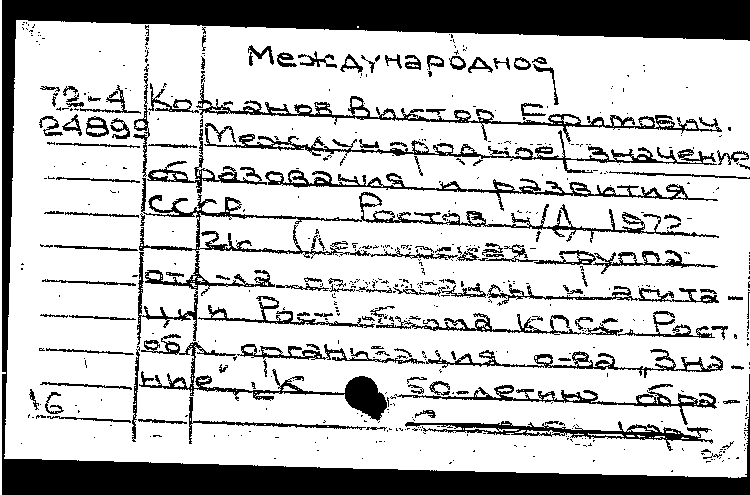 Международное
72-4 Кожанов, Виктор Ефимович.
24899 Международное значение
образования и развития
СССР. Ростов н/Д, 1972.
21с. (Лекторская группа
отд-ла пропаганды и агита-
ции Рост. обкома КПСС. Рост.
обл. организация о-ва „Зна-
ние". К 50-летию обра-
16
карт